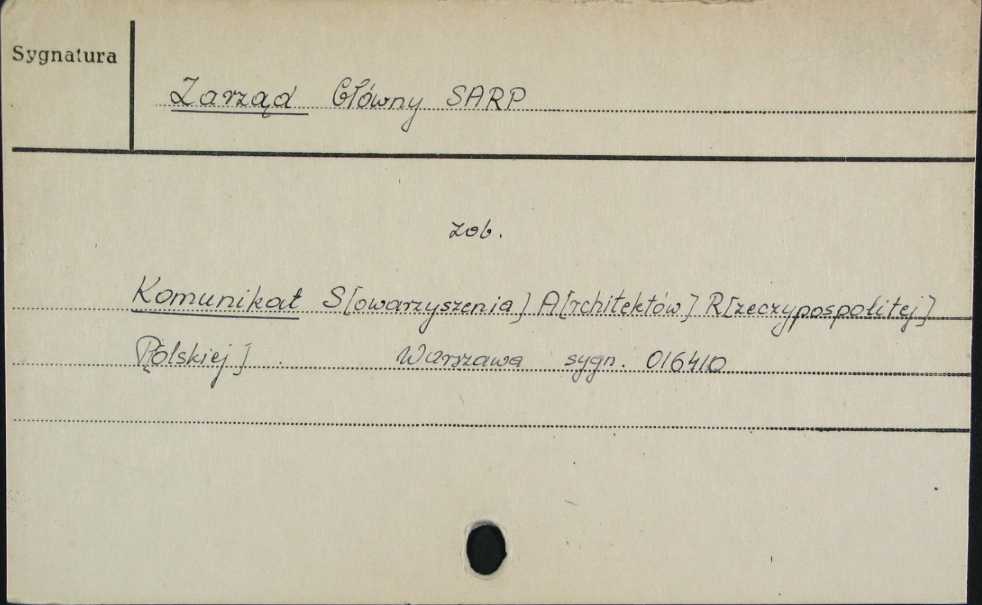 Sygnatura
Zarząd Główny SARP
zob.
Komunikat S[owarzyszenia] A[rchitektów] R[zeczypospolitej]
P[olskiej] Warszawa sygn. 016410